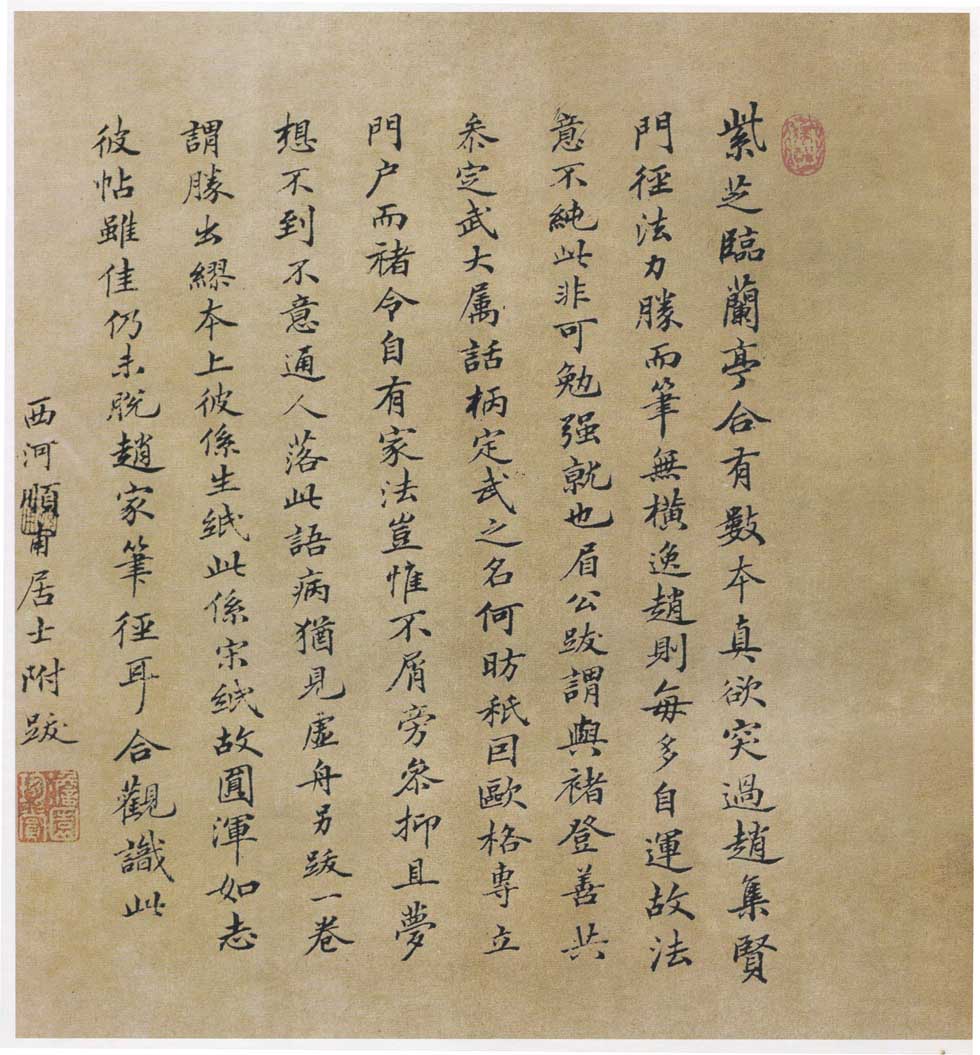 紫芝臨蘭亭合有數本真欲突過趙集賢
門徑法力勝而筆無橫逸趙則每多自運故法
意不純此非可勉强就也眉公跋謂與褚登善共
叅定武大属話柄定武之名何昉秖回歐格專立
門户而褚令自有家法豈惟不屑旁叅抑且夢
想不到不意通人落此語病猶見虛舟另跋一卷
謂勝出繆本上彼係生紙此係宋紙故圓渾如志
彼帖雖佳仍未脫趙家筆徑耳合觀識此
西河順甫居士附跋